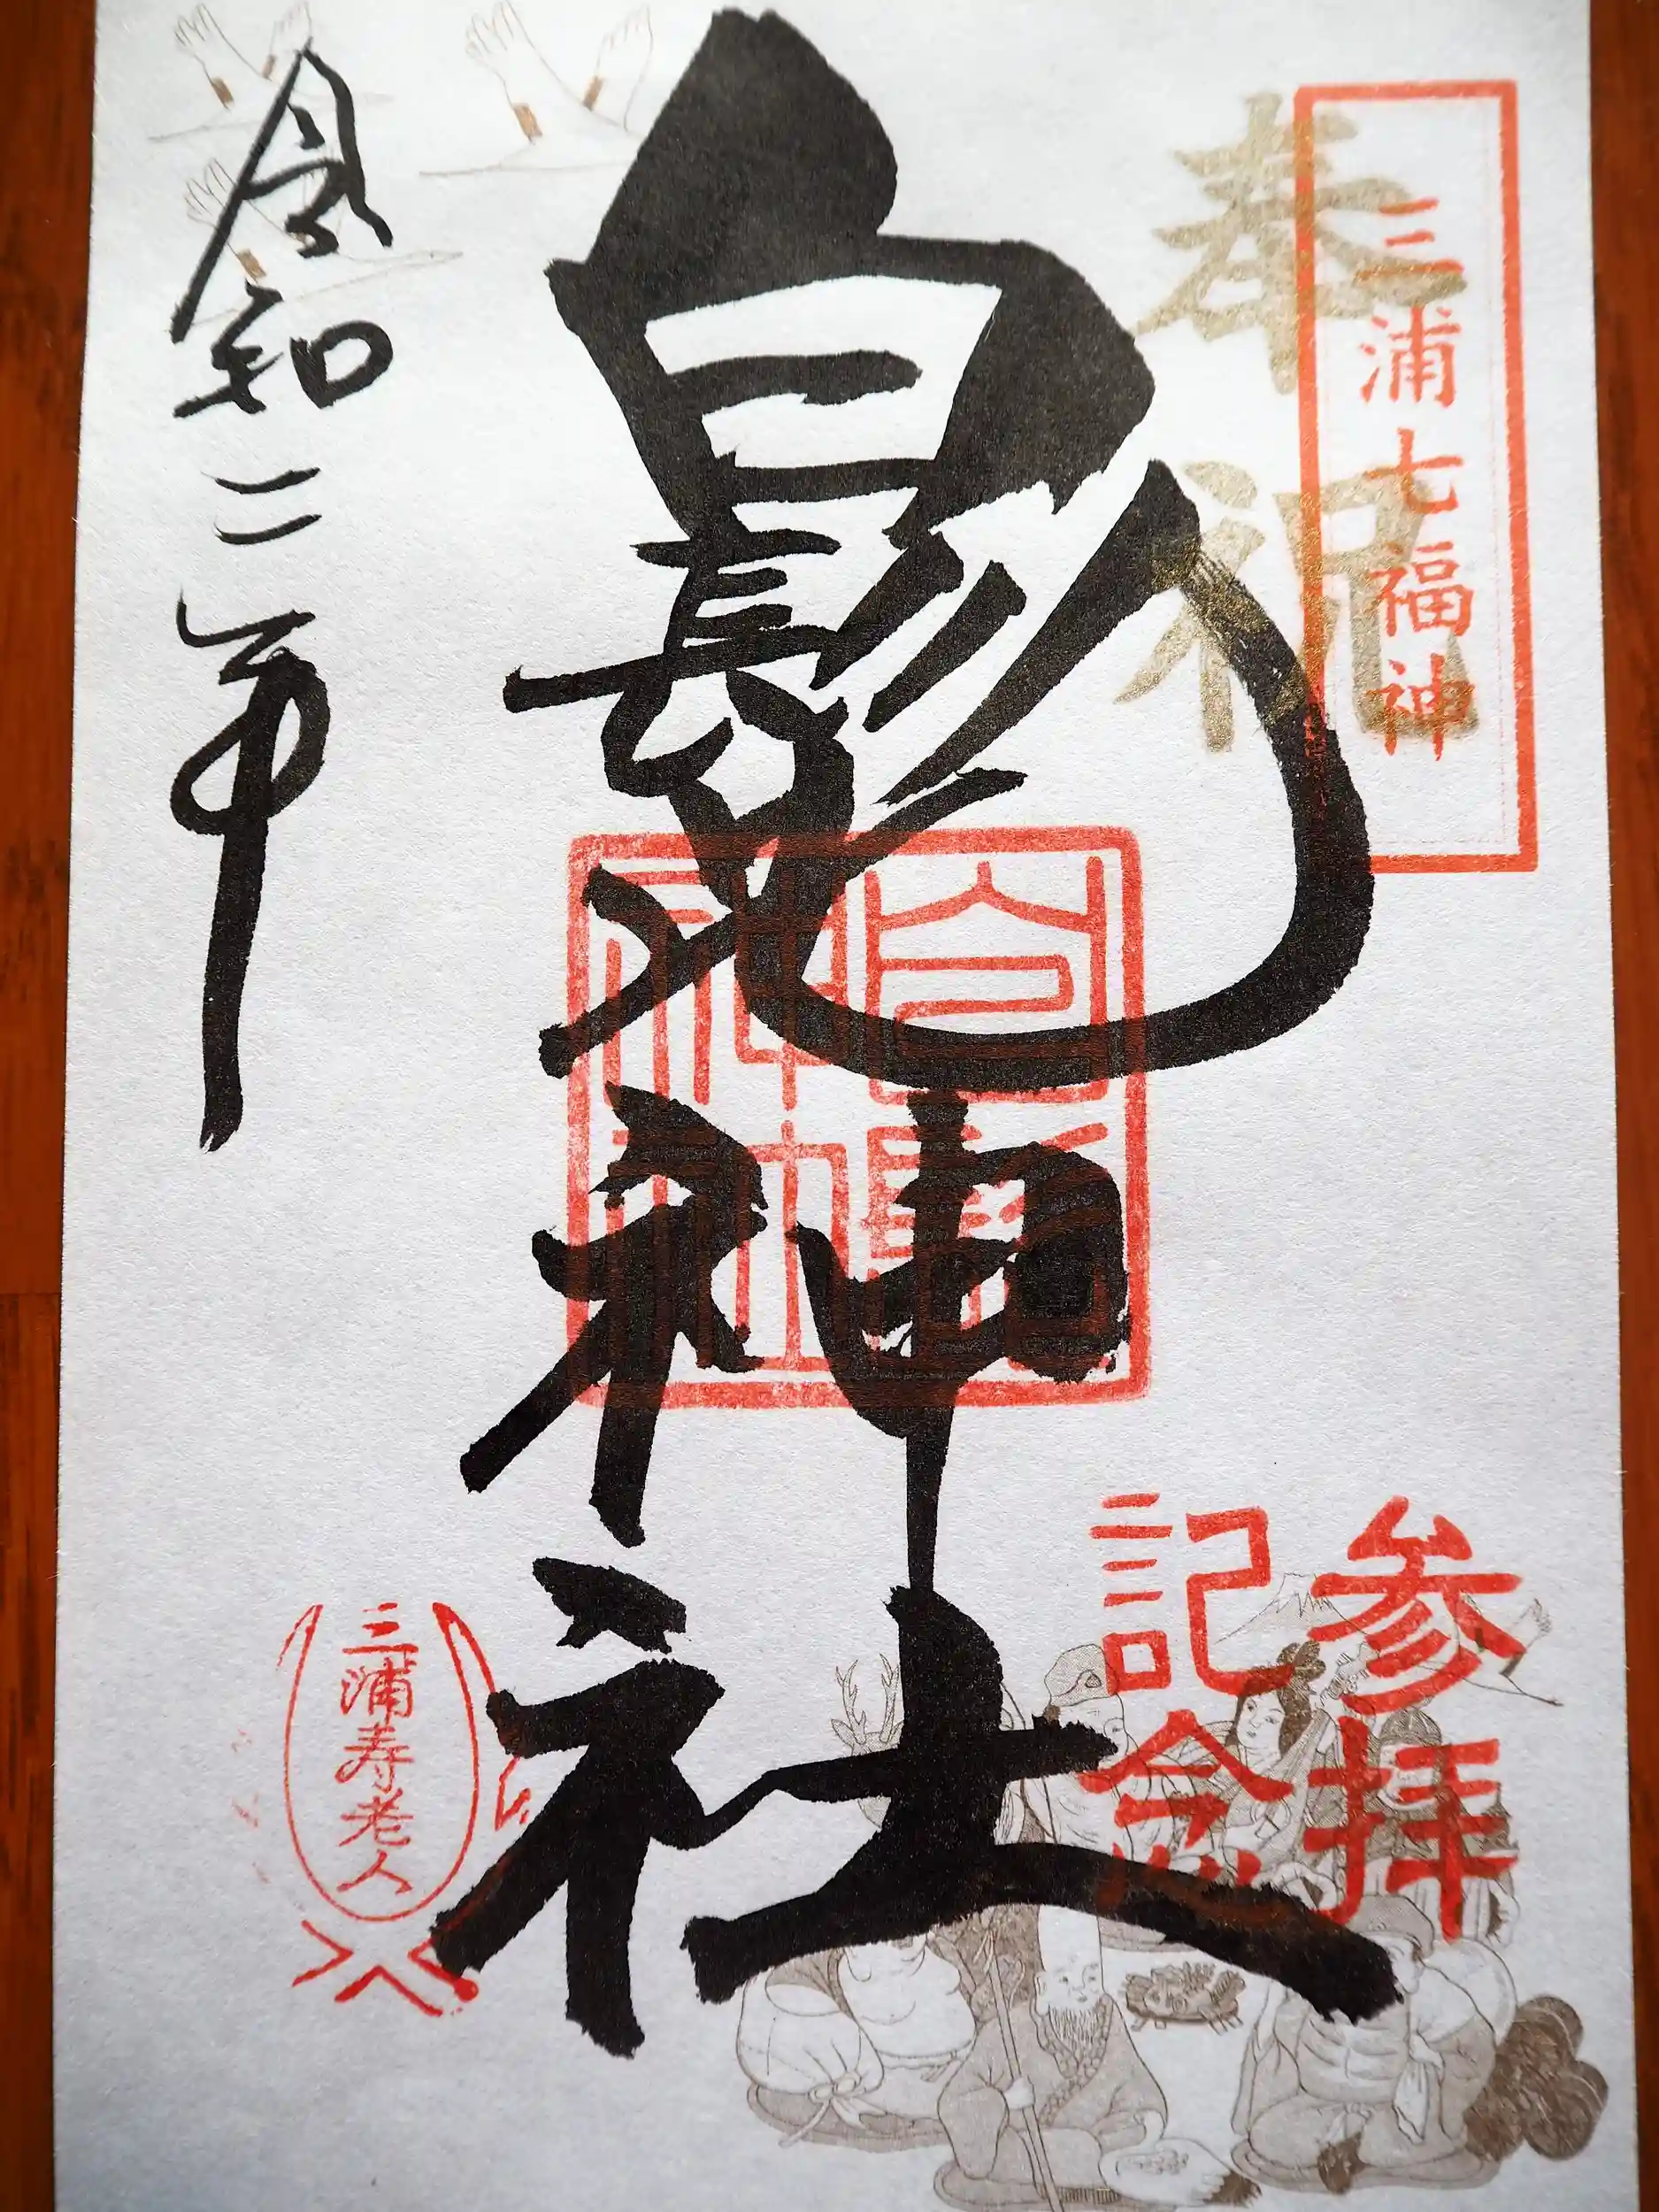 奉祝
三浦七福神
参拝
記念
白髭神社
白髭
神社
令和二年
三浦寿老人